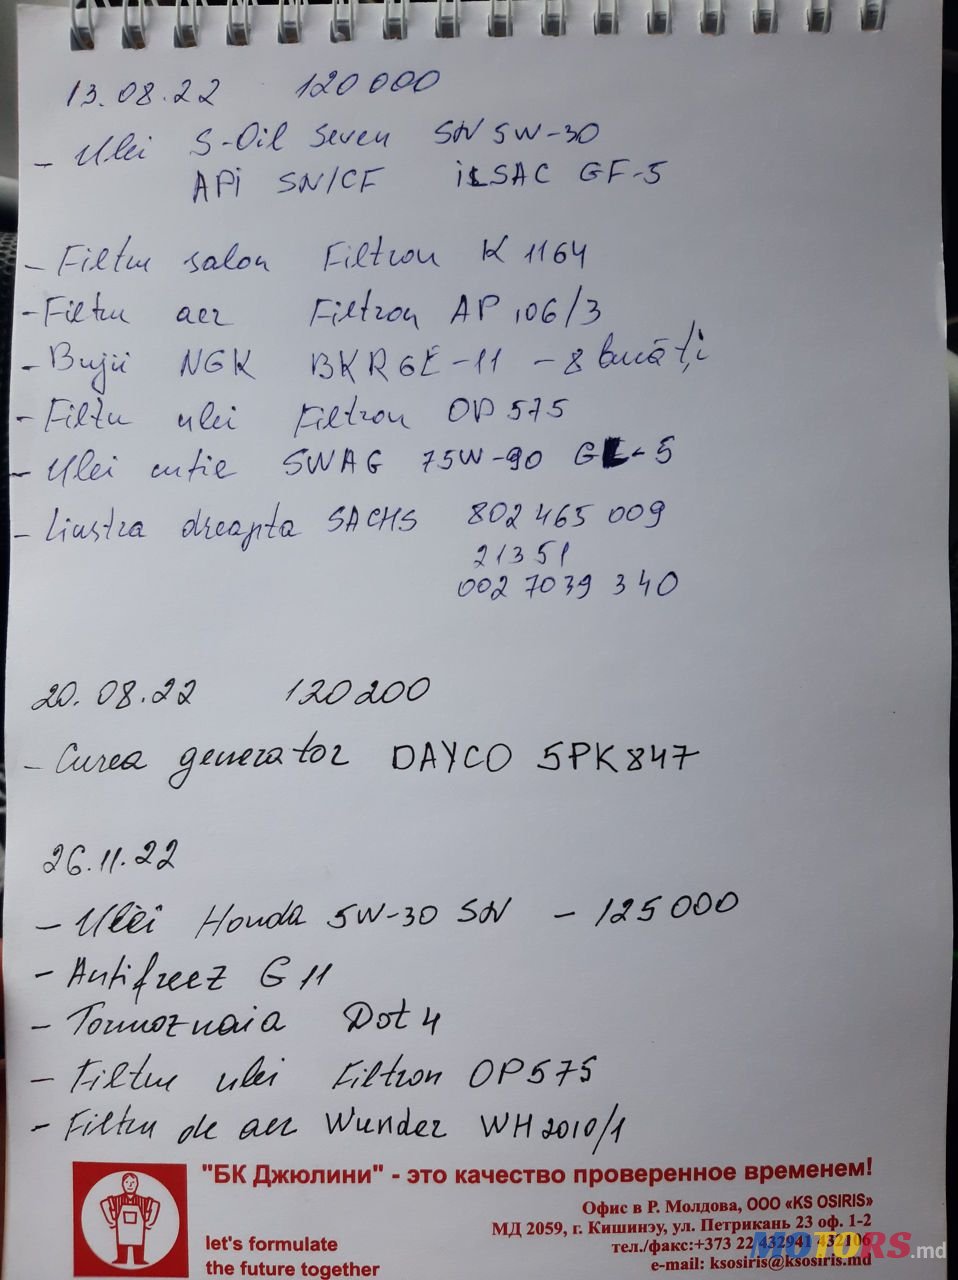 13.08.22 120 000
- Ulei S-Oil Seven SN 5W-30
API SN/CF iLSAC GF-5
- Filtru salon Filtron K 1164
- Filtru aer Filtron AP 106/3
- Bujii NGK BKR6E-11 - 8 bucăți
- Filtru ulei Filtron OP 575
- Ulei cutie SWAG 75W-90 GL-5
- Liustra dreapta SACHS 802 465 009
21351
002 7039 340
20.08.22 120 200
- Curea generator DAYCO 5PK847
26.11.22
- Ulei Honda 5W-30 SN - 125 000
- Antifreez G11
- Tormoznaia Dot 4
- Filtru ulei Filtron OP575
- Filtru de aer Wunder WH2010/1
"БК Джюлини" - это качество проверенное временем!
Офис в Р. Молдова, ООО «KS OSIRIS»
МД 2059, г. Кишинэу, ул. Петрикань 23 оф. 1-2
let's formulate
тел./факс:+373 22 432941 432106
the future together
e-mail: ksosiris@ksosiris.md
MOTORS.md